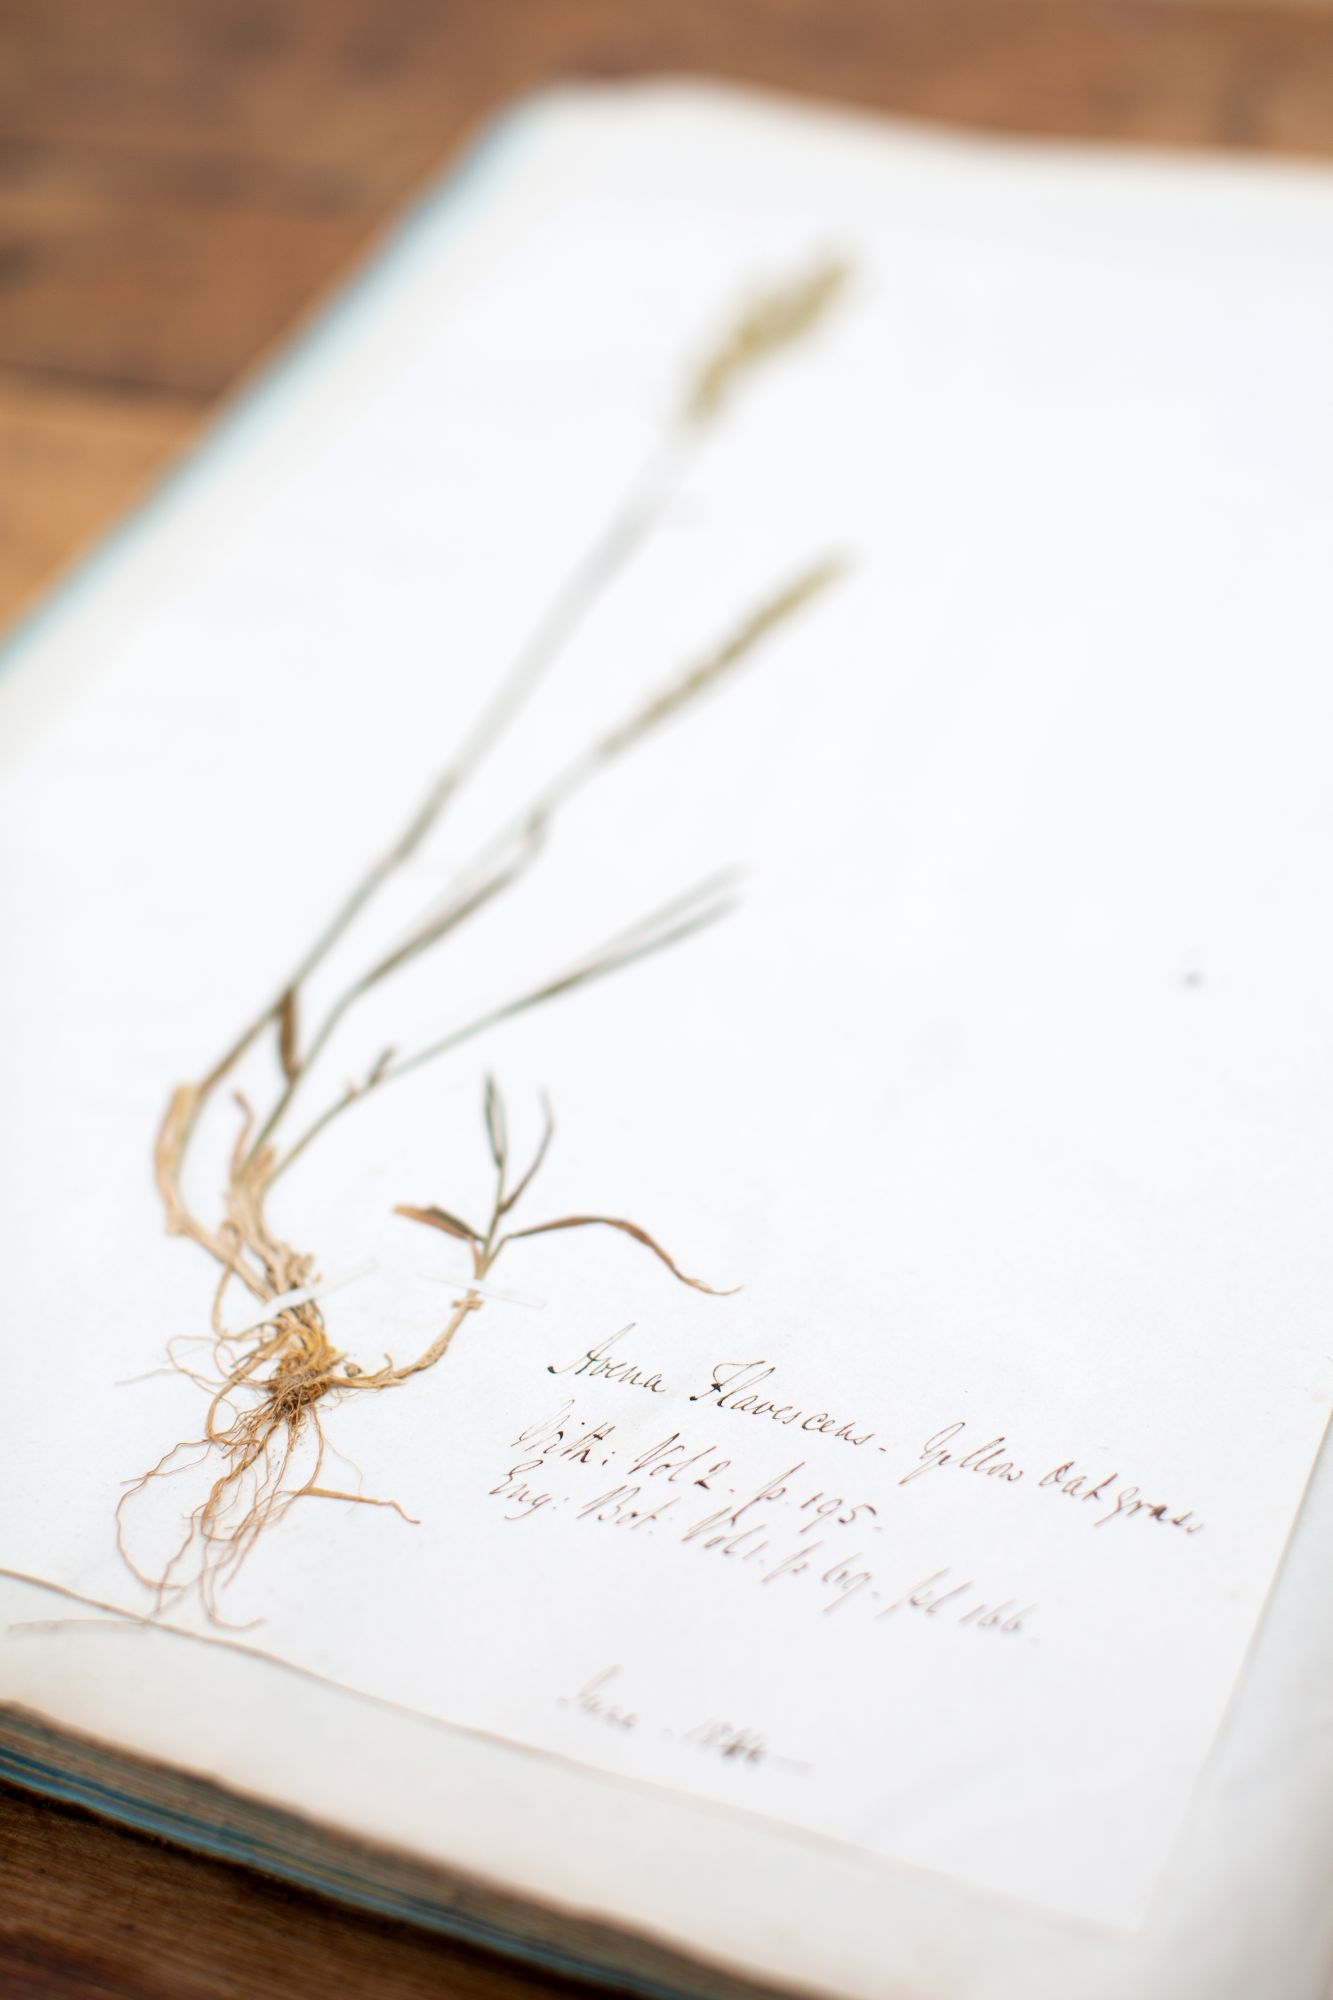 Avena Flavescens - Yellow Oat grass
With: Vol 2. p. 195.
Eng: Bot: Vol 1. p 69. pl 166.
June - 18